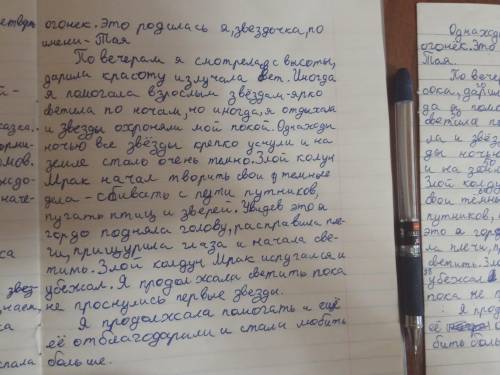 огонек. Это родилась я, звездочка, по
имени - Тая
По вечерам я смотрела с высоты,
дарила красоту излучала свет. Иногда
я помогала взрослым звёздам - ярко
светила по ночам, но иногда, я отдыхала
и звезды охроняли мой покой. Однажды
ночью все звёзды крепко уснули и на
земле стало очень темно. Злой колдун
Мрак начал творить свои темные
дела - сбивать с пути путников,
пугать птиц и зверей. Увидев это я
гордо подняла голову, расправила пле-
чи, прищурила глаза и начала све-
тить. Злой колдун Мрак испугался и
убежал. Я продолжала светить пока
не проснулись первые звезды.
Я продолжала помогать и ещё
её отблагодарили и стали любить
больше.
Однажды
огонек. Это
Тая.
По вече
да я пом
светила
ла и звёз
ды ночью
и на зем
Злой колд
свои темн
путников,
это я горд
ла плечи,
светить. Зл
убежал.
пока не
Я прод
её
бить боль